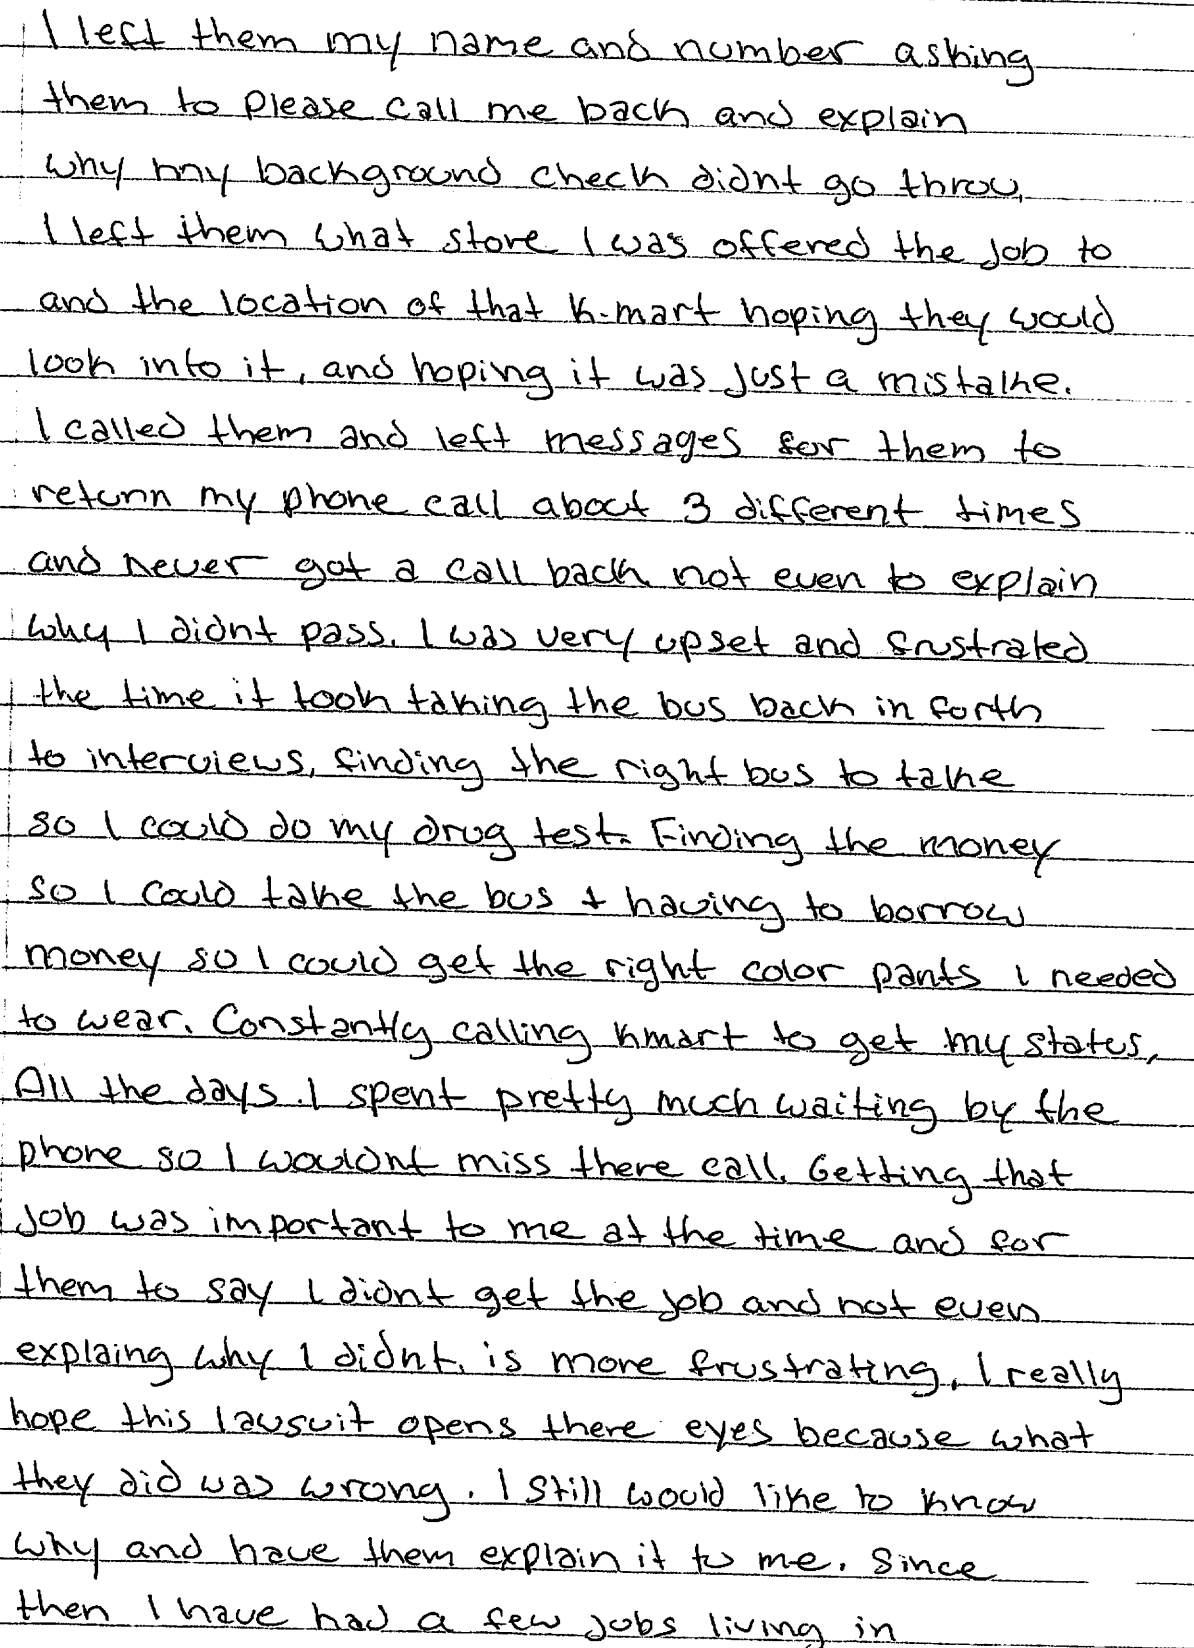 I left them my name and number asking
them to please call me back and explain
why my background check didnt go throu,
I left them what store I was offered the job to
and the location of that K-mart hoping they would
look into it, and hoping it was just a mistake.
I called them and left messages for them to
return my phone call about 3 different times
and never got a call back not even to explain
why I didnt pass. I was very upset and frustrated
the time it took taking the bus back in forth
to interviews, finding the right bus to take
so I could do my drug test. Finding the money
so I could take the bus + having to borrow
money so I could get the right color pants I needed
to wear. Constantly calling kmart to get my status,
All the days I spent pretty much waiting by the
phone so I wouldnt miss there call. Getting that
job was important to me at the time and for
them to say I didnt get the job and not even
explaing why I didnt, is more frustrating, I really
hope this lawsuit opens there eyes because what
they did was wrong. I still would like to know
why and have them explain it to me. Since
then I have had a few jobs living in